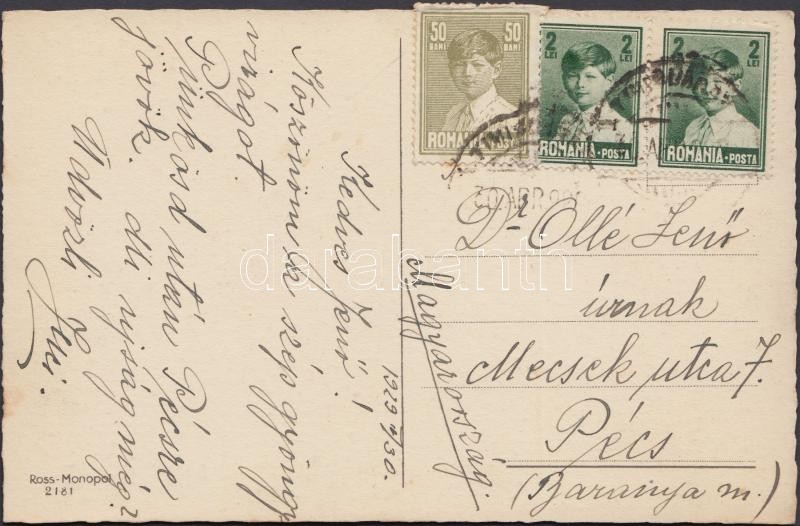 50 BANI 50 BANI
ROMANIA POSTA
2 LEI 2 LEI
ROMANIA-POSTA
2 LEI 2 LEI
ROMANIA-POSTA
30.APR.
1929 IV/30.
Kedves Jenő!
Köszönöm a szép gyöngy
virágot.
Pünkösd után Pécsre
jövök. újság még?
Üdvözli
Dr Ollé Jenő
úrnak
Mecsek utca 7.
Pécs
(Baranya m.)
Magyarország.
Ross-Monopol
2181
darabanth